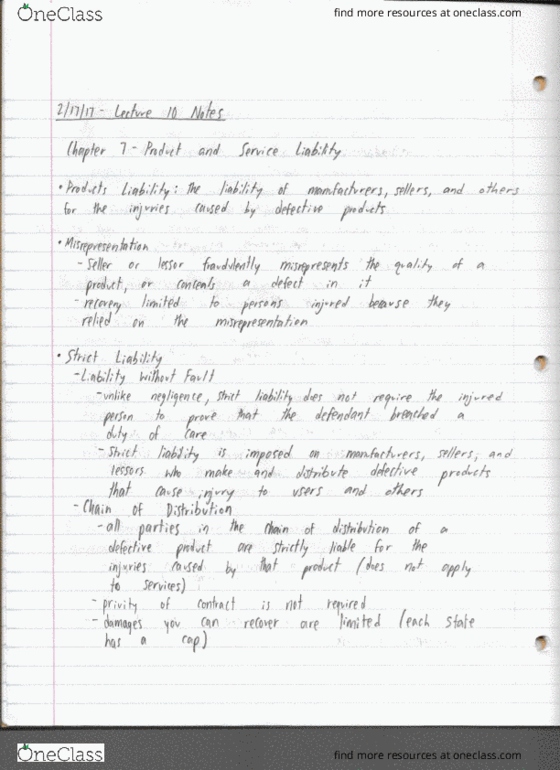 OneClass
find more resources at oneclass.com
2/17/17 - Lecture 10 Notes
Chapter 7 - Product and Service Liability
• Products Liability: the liability of manufacturers, sellers, and others
for the injuries caused by defective products
• Misrepresentation
- Seller or lessor fraudulently misrepresents the quality of a
product, or conceals a defect in it
- recovery limited to persons injured because they
relied on the misrepresentation
• Strict Liability
- Liability Without Fault
- unlike negligence, strict liability does not require the injured
person to prove that the defendant breached a
duty of care
- Strict liability is imposed on manufacturers, sellers, and
lessors who make and distribute defective products
that cause injury to users and others
- Chain of Distribution
- all parties in the chain of distribution of a
defective product are strictly liable for the
injuries caused by that product (does not apply
to services)
- privity of contract is not required
- damages you can recover are limited (each state
has a cap)
OneClass
find more resources at oneclass.com